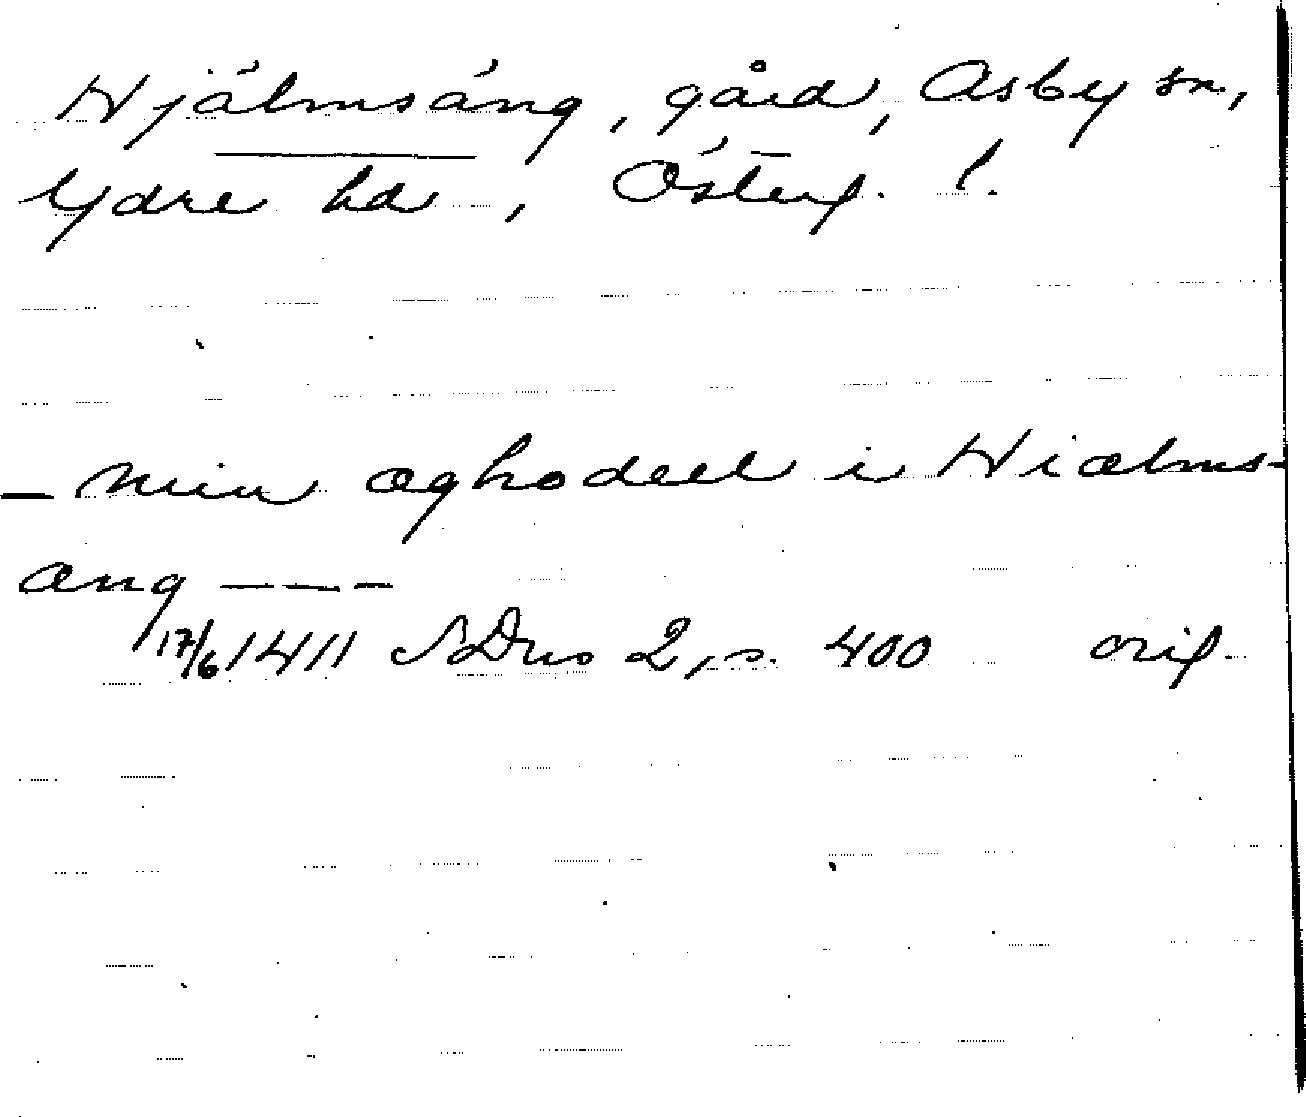 Hjälmsäng, gård, Asby sn,
Ydre hd, Österg. l.
— min æghodeel i Hiælms-
æng — — —
17/6 1411 SDns 2, s. 400 orig.